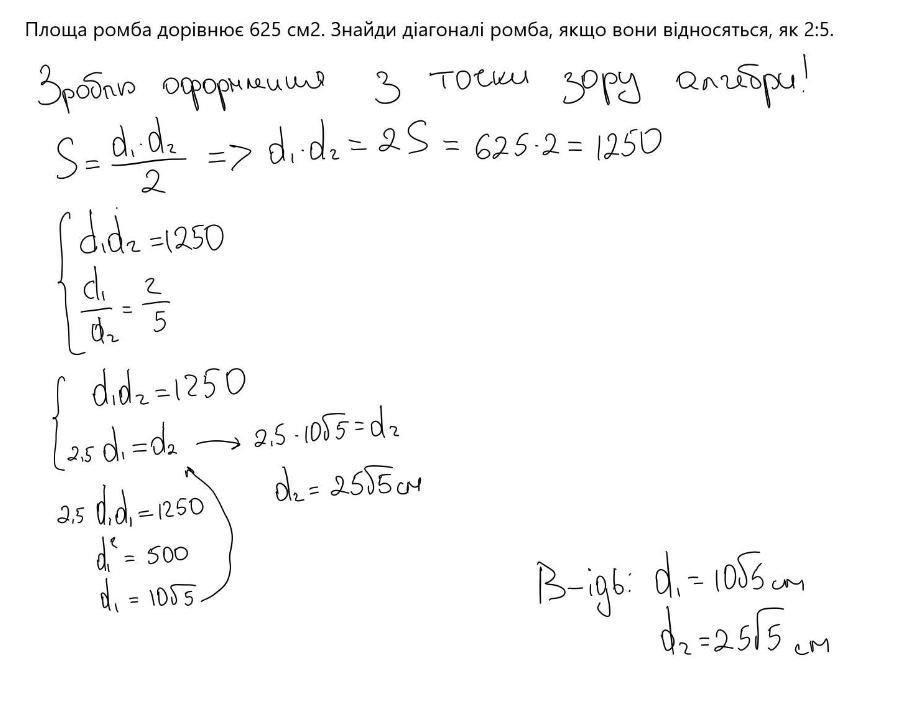 Площа ромба дорівнює 625 см2. Знайди діагоналі ромба, якщо вони відносяться, як 2:5.
Зроблю оформлення з точки зору алгебри!
S = d₁·d₂/2 => d₁·d₂ = 2S = 625·2 = 1250
{ d₁d₂ = 1250
d₁/d₂ = 2/5
{ d₁d₂ = 1250
2,5 d₁ = d₂ → 2,5·10√5 = d₂
d₂ = 25√5 см
2,5 d₁d₁ = 1250
d₁² = 500
d₁ = 10√5
В-ідь: d₁ = 10√5 см
d₂ = 25√5 см